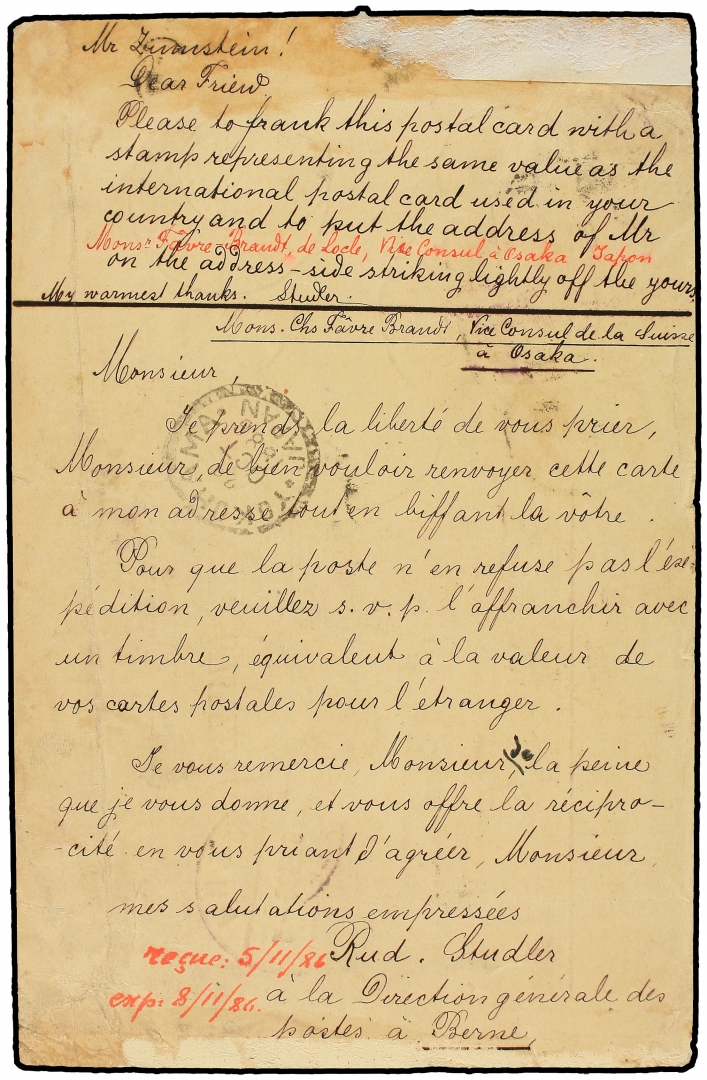 Mr Zinnstein!
Dear Friend
Please to frank this postal card with a
stamp representing the same value as the
international postal card used in your
country and to put the address of Mr
Monsr Fâvre-Brandt, de Locle, Vice Consul à Osaka Japon
on the address-side striking lightly off the yours.
My warmest thanks. Studler.
Mons. Chs Fâvre Brandt, Vice Consul de la Suisse
à Osaka.
Monsieur,
Je prends la liberté de vous prier,
Monsieur, de bien vouloir renvoyer cette carte
à mon adresse tout en biffant la vôtre.
Pour que la poste n'en refuse pas l'éx-
pédition, veuillez s. v. p. l'affranchir avec
un timbre, équivalent à la valeur de
vos cartes postales pour l'étranger.
Je vous remercie, Monsieur, de la peine
que je vous donne, et vous offre la récipro-
-cité en vous priant d'agréer, Monsieur,
mes salutations empressées
reçue: 5/11/86 Rud. Studler
exp: 8/11/86. à la Direction générale des
postes à Berne.
YOKOHAMA
JAPAN
OCT